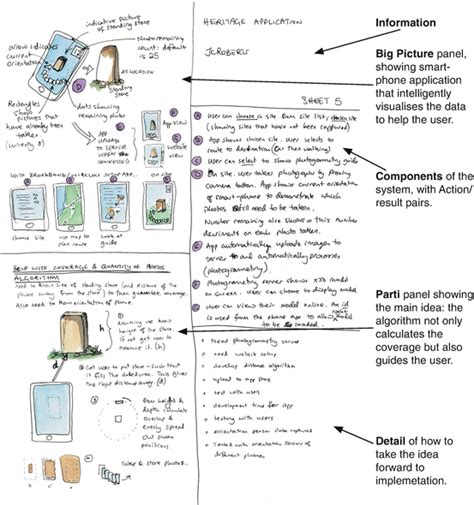 indicative picture
of standing stone
arrow indicates
current
orientation
photo remaining
count: default
is 25
AT LOCATION
standing
stone
Rectangles
show
pictures
that have
already been
taken
(currently 8)
dots showing
remaining
APP
UPLOADS
TO SERVER
(WHEN
CONNECTED)
App view
website
view
choose site
use map to
plan route
Look at
guide
HELP WITH COVERAGE & QUANTITY OF PHOTOS
ALGORITHM
need to know size of standing stone (and distance of
the phone away from the stone) to guarantee coverage.
Also need to know orientation of phone.
① Assuming we know
height of the stone.
If not get user to
measure it (h)
h
d
② Get user to put stone - such that
it fits the dotted area. This gives
the right distance away (d)
③ from height &
depth calculate
overlap &
evenly spread
out photo
positions
Take & store photos...
HERITAGE APPLICATION
JCROBERTS
SHEET 5
A User can choose a site from site list, chosen site
(showing sites that have not been captured)
B App shows chosen site. User selects to
route to destination (or then walking)
C User can select to show photogrammetry guide
D On site. User takes photographs by pressing
camera button. App shows current orientation
of smart-phone to demonstrate which
photos still need to be taken.
Number remaining also shows - this number
decrements on each photo taken.
E App automatically uploads images to
server to automatically processes
(photogrammetry)
F Photogrammetry server shows
on screen. User can choose to display model
G User can view their model online. An id
is used from the phone app to allow model
to be loaded.
• Need photogrammetry server
• need website setup
• develop distance algorithm
• upload to app store
• test with users
• development time for app
• testing with users
• orientation sensor data captured
• Tested with orientation sensors of
different phones
Information
Big Picture panel,
showing smart-
phone application
that intelligently
visualises the data
to help the user.
Components of the
system, with Action/
result pairs.
Parti panel showing
the main idea: the
algorithm not only
calculates the
coverage but also
guides the user.
Detail of how to
take the idea
forward to
implemetation.